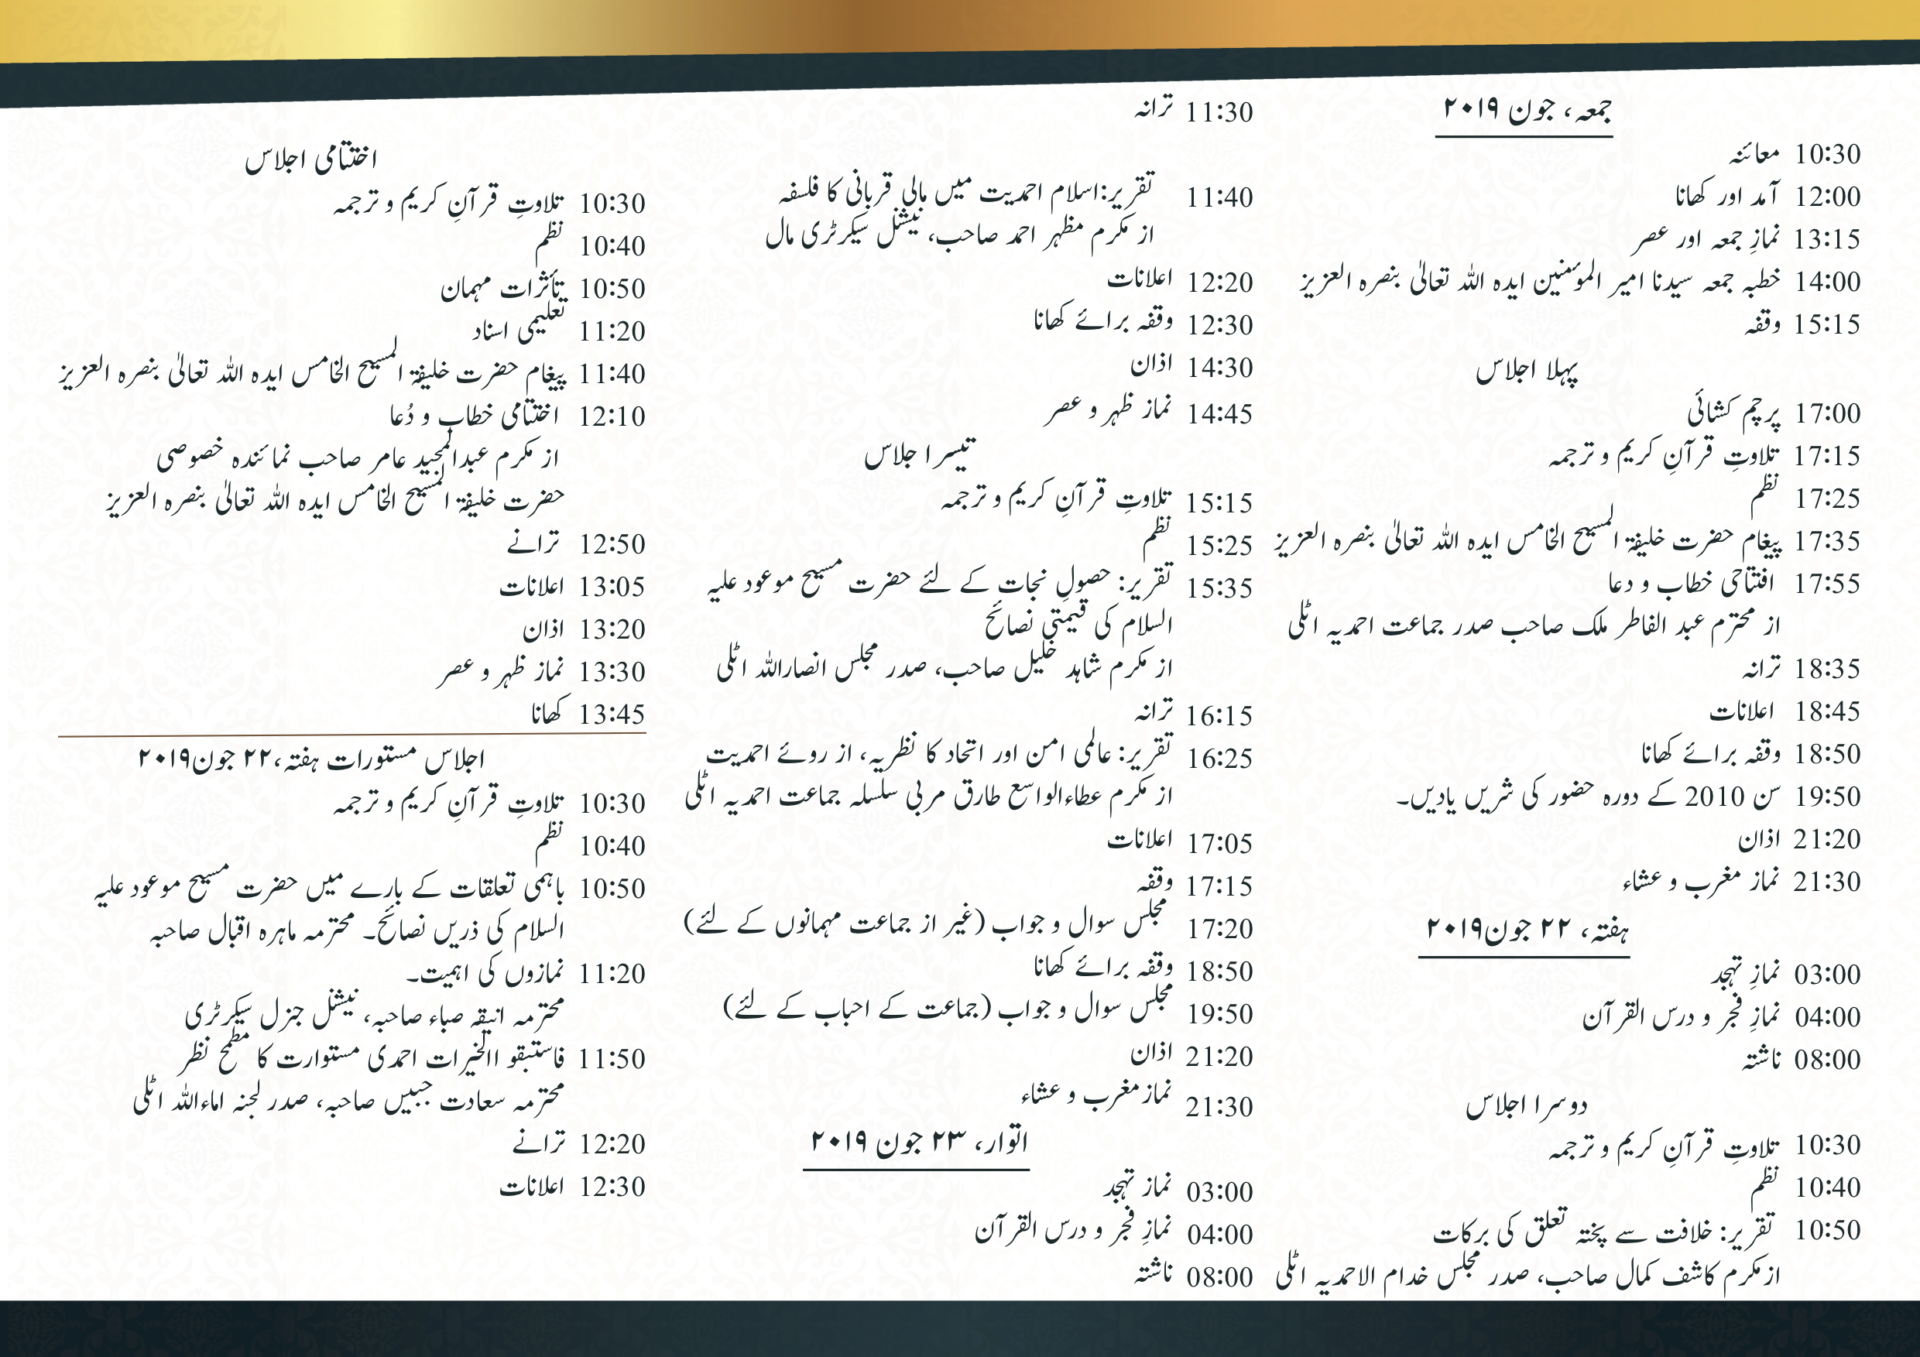 جمعہ، جون ۲۰۱۹
10:30 معائنہ
12:00 آمد اور کھانا
13:15 نمازِ جمعہ اور عصر
14:00 خطبہ جمعہ سیدنا امیر المؤمنین ایدہ اللہ تعالیٰ بنصرہ العزیز
15:15 وقفہ
پہلا اجلاس
17:00 پرچم کشائی
17:15 تلاوتِ قرآنِ کریم و ترجمہ
17:25 نظم
17:35 پیغام حضرت خلیفۃ المسیح الخامس ایدہ اللہ تعالیٰ بنصرہ العزیز
17:55 افتتاحی خطاب و دعا
از محترم عبد الفاطر ملک صاحب صدر جماعت احمدیہ اٹلی
18:35 ترانہ
18:45 اعلانات
18:50 وقفہ برائے کھانا
19:50 سن 2010 کے دورہ حضور کی شریں یادیں۔
21:20 اذان
21:30 نماز مغرب و عشاء
ہفتہ، ۲۲ جون۲۰۱۹
03:00 نمازِ تہجد
04:00 نمازِ فجر و درس القرآن
08:00 ناشتہ
دوسرا اجلاس
10:30 تلاوتِ قرآنِ کریم و ترجمہ
10:40 نظم
10:50 تقریر: خلافت سے پختہ تعلق کی برکات
ازمکرم کاشف کمال صاحب، صدر مجلس خدام الاحمدیہ اٹلی
11:30 ترانہ
11:40 تقریر:اسلام احمدیت میں مالی قربانی کا فلسفہ
از مکرم مظہر احمد صاحب، نیشنل سیکرٹری مال
12:20 اعلانات
12:30 وقفہ برائے کھانا
14:30 اذان
14:45 نماز ظہر و عصر
تیسرا جلاس
15:15 تلاوتِ قرآنِ کریم و ترجمہ
15:25 نظم
15:35 تقریر: حصولِ نجات کے لئے حضرت مسیح موعود علیہ
السلام کی قیمتی نصائح
از مکرم شاہد خلیل صاحب، صدر مجلس انصاراللہ اٹلی
16:15 ترانہ
16:25 تقریر: عالمی امن اور اتحاد کا نظریہ، از روئے احمدیت
از مکرم عطاءالواسع طارق مربی سلسلہ جماعت احمدیہ اٹلی
17:05 اعلانات
17:15 وقفہ
17:20 مجلس سوال و جواب (غیر از جماعت مہمانوں کے لئے)
18:50 وقفہ برائے کھانا
19:50 مجلس سوال و جواب (جماعت کے احباب کے لئے)
21:20 اذان
21:30 نمازمغرب و عشاء
اتوار، ۲۳ جون ۲۰۱۹
03:00 نماز تہجد
04:00 نمازِ فجر و درس القرآن
08:00 ناشتہ
اختتامی اجلاس
10:30 تلاوتِ قرآنِ کریم و ترجمہ
10:40 نظم
10:50 تأثرات مہمان
11:20 تعلیمی اسناد
11:40 پیغام حضرت خلیفۃ المسیح الخامس ایدہ اللہ تعالیٰ بنصرہ العزیز
12:10 اختتامی خطاب و دُعا
از مکرم عبدالمجید عامر صاحب نمائندہ خصوصی
حضرت خلیفۃ المسیح الخامس ایدہ اللہ تعالیٰ بنصرہ العزیز
12:50 ترانے
13:05 اعلانات
13:20 اذان
13:30 نماز ظہر و عصر
13:45 کھانا
اجلاس مستورات ہفتہ،۲۲ جون۲۰۱۹
10:30 تلاوتِ قرآنِ کریم و ترجمہ
10:40 نظم
10:50 باہمی تعلقات کے بارے میں حضرت مسیح موعود علیہ
السلام کی ذریں نصائح۔ محترمہ ماہرہ اقبال صاحبہ
11:20 نمازوں کی اہمیت۔
محترمہ انیقہ صباء صاحبہ، نیشنل جنرل سیکرٹری
11:50 فاستبقو االخیرات احمدی مستوارت کا مطمح نظر
محترمہ سعادت جبیں صاحبہ، صدر لجنہ اماءاللہ اٹلی
12:20 ترانے
12:30 اعلانات